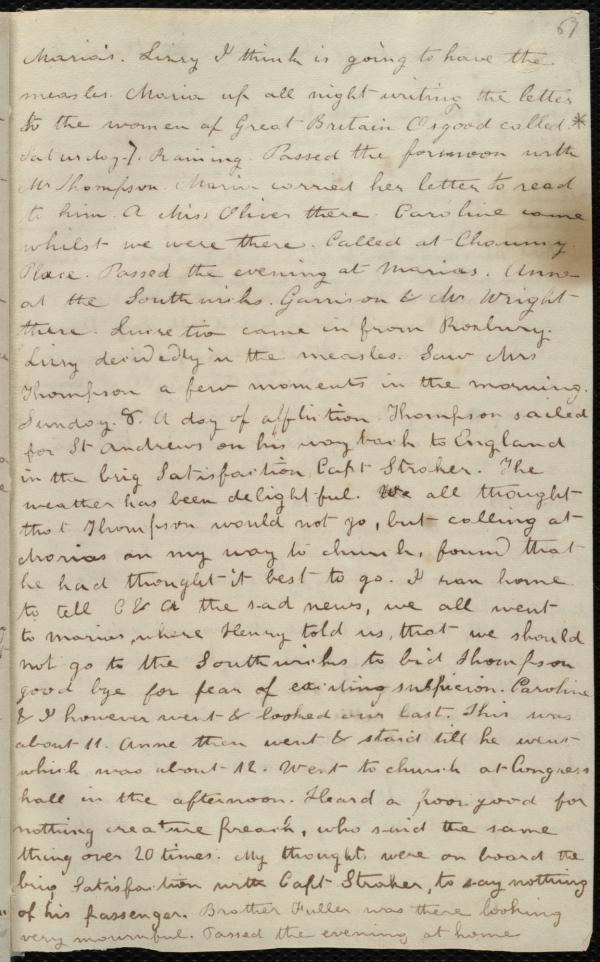 67
Maria's. Lizzy I think is going to have the
measles. Maria up all night writing the letter
to the women of Great Britain Osgood called.*
Saturday. 7. Raining. Passed the forenoon with
Mr Thompson. Maria carried her letter to read
to him. A Miss Oliver there. Caroline came
whilst we were there. Called at Chauncy
Place. Passed the evening at Marias. Anne
at the Southwicks. Garrison & Mr Wright
there. Lucretia came in from Roxbury.
Lizzy decidedly in the measles. Saw Mrs
Thompson a few moments in the morning.
Sunday. 8. A day of affliction. Thompson sailed
for St Andrews on his way back to England
in the brig Satisfaction Capt Stroker. The
weather has been delightful. We all thought
that Thompson would not go, but calling at
Marias on my way to church, found that
he had thought it best to go. I ran home
to tell C & A the sad news, we all went
to Marias, where Henry told us, that we should
not go to the Southwicks to bid Thompson
good bye for fear of exciting suspicion. Caroline
& I however went & looked our last. This was
about 11. Anne then went & staid till he went
which was about 12. Went to church at Congress
hall in the afternoon. Heard a poor good for
nothing creature preach, who said the same
thing over 20 times. My thoughts were on board the
brig Satisfaction with Capt Stroker, to say nothing
of his passenger. Brother Fuller was there looking
very mournful. Passed the evening at home